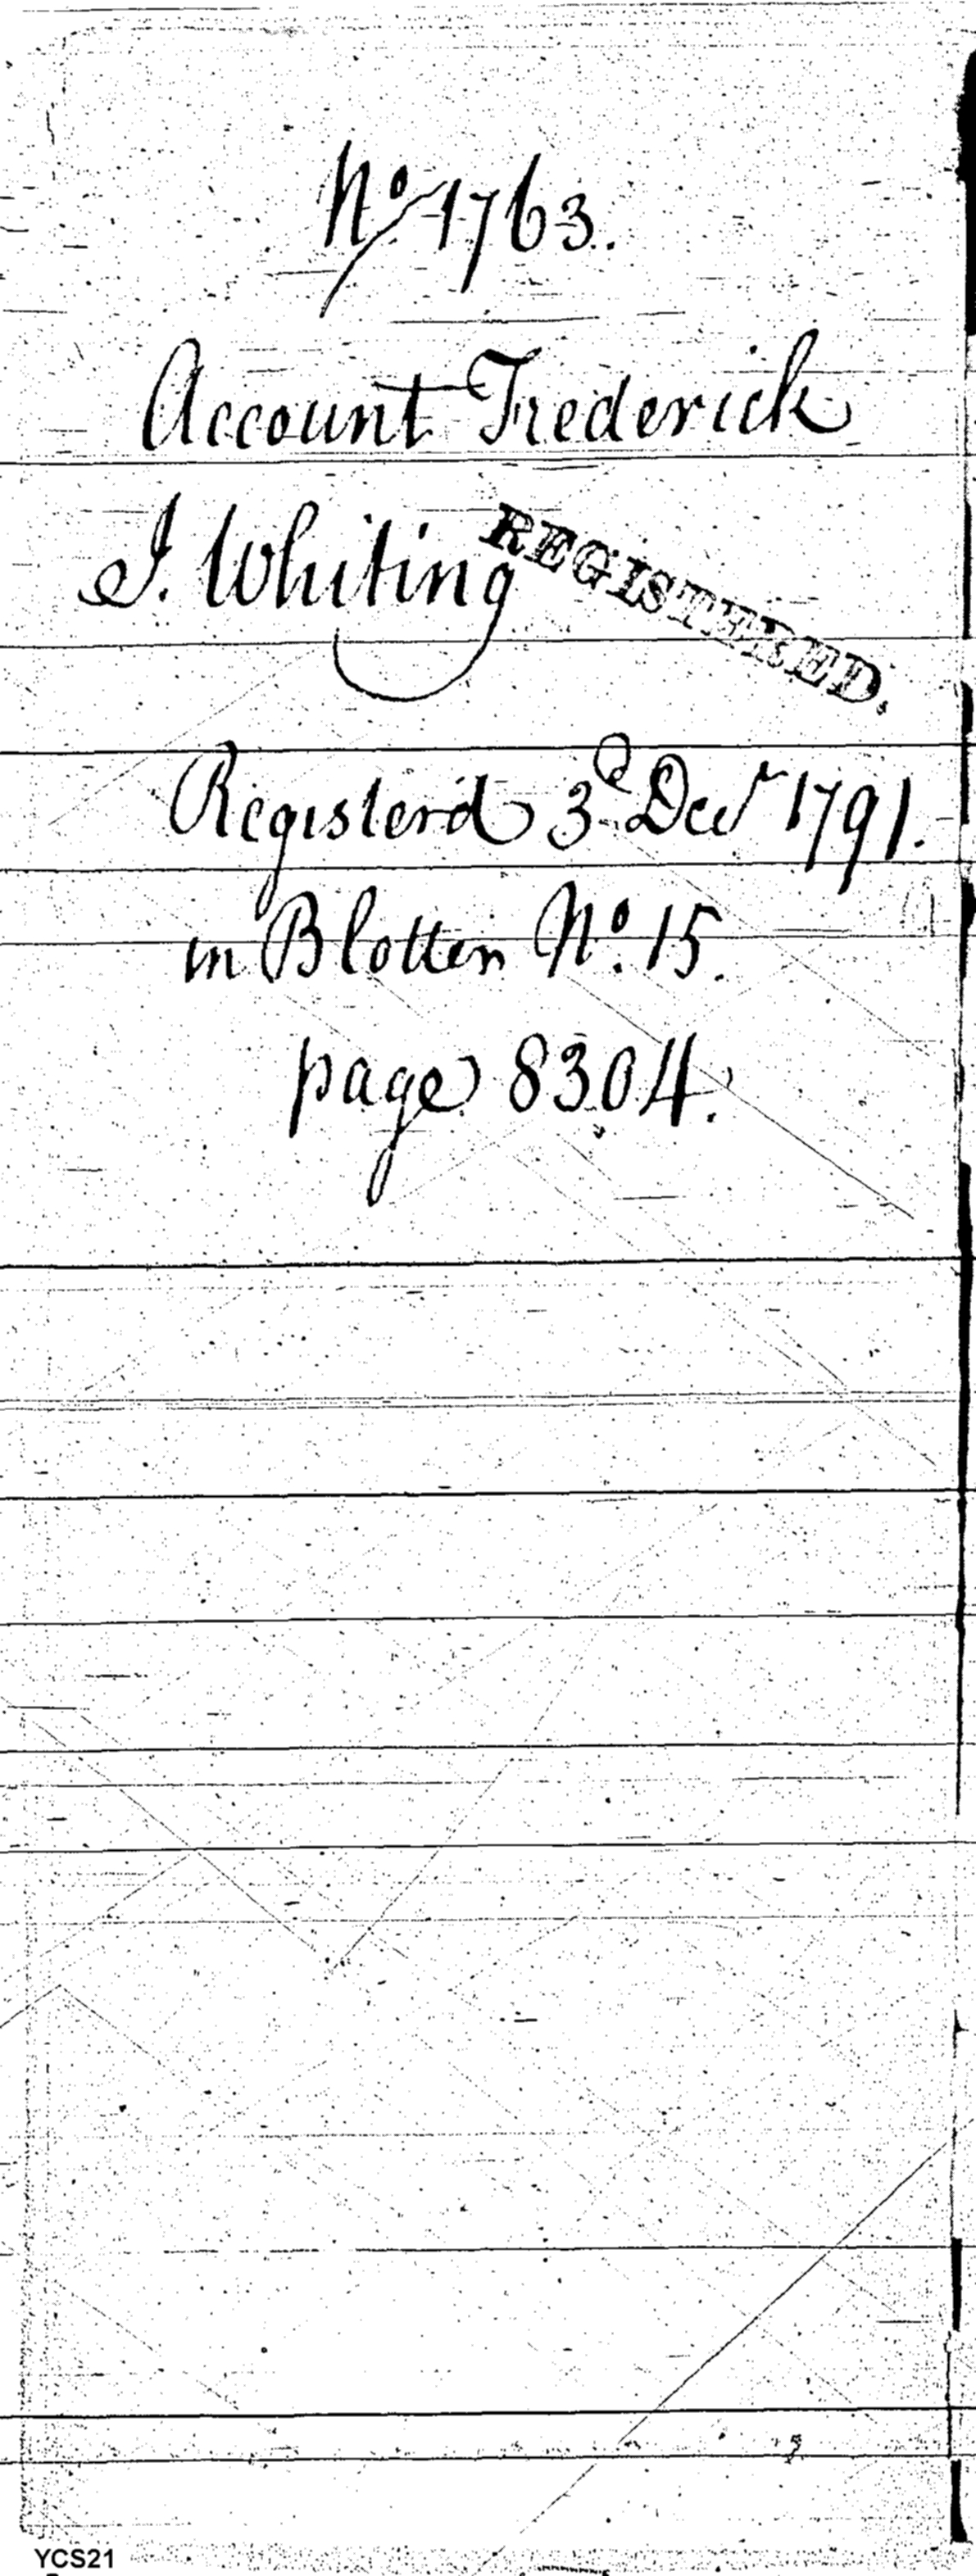 No. 1763.
Account Frederick
J. Whiting
REGISTERED.
Registerd 3d Decr 1791.
in Blotter No. 15.
page 8304.
YCS21